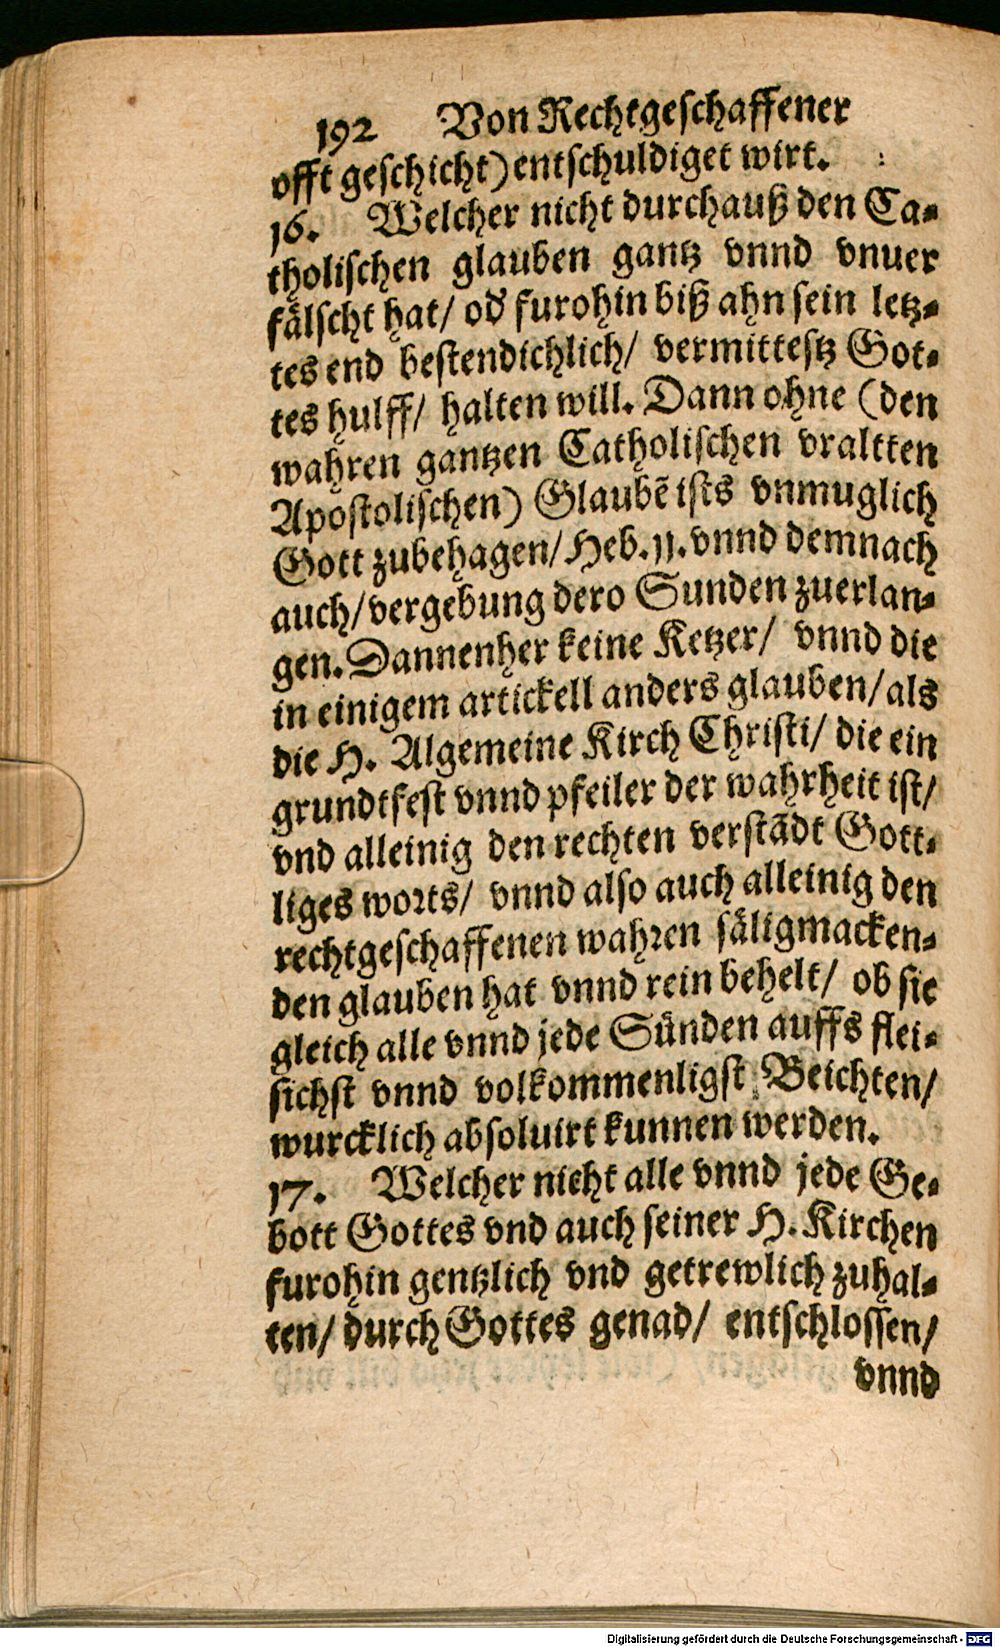 192 Von Rechtgeschaffener
offt geschicht) entschuldiget wirt.
16. Welcher nicht durchauß den Ca-
tholischen glauben gantz vnnd vnuer
fälscht hat/ od' furohin biß ahn sein letz-
tes end bestendichlich/ vermittestz Got-
tes hulff/ halten will. Dann ohne (den
wahren gantzen Catholischen vraltten
Apostolischen) Glaubẽ ists vnmuglich
Gott zubehagen/ Heb. 11. vnnd demnach
auch/ vergebung dero Sunden zuerlan-
gen. Dannenher keine Ketzer/ vnnd die
in einigem artickell anders glauben/ als
die H. Algemeine Kirch Christi/ die ein
grundtfest vnnd pfeiler der wahrheit ist/
vnd alleinig den rechten verstãdt Gott-
liges worts/ vnnd also auch alleinig den
rechtgeschaffenen wahren säligmacken-
den glauben hat vnnd rein behelt/ ob sie
gleich alle vnnd jede Sünden auffs flei-
sichst vnnd volkommenligst Beichten/
wurcklich absoluirt kunnen werden.
17. Welcher nicht alle vnnd jede Ge-
bott Gottes vnd auch seiner H. Kirchen
furohin gentzlich vnd getrewlich zuhal-
ten/ durch Gottes genad/ entschlossen/
vnnd
Digitalisierung gefördert durch die Deutsche Forschungsgemeinschaft - DFG